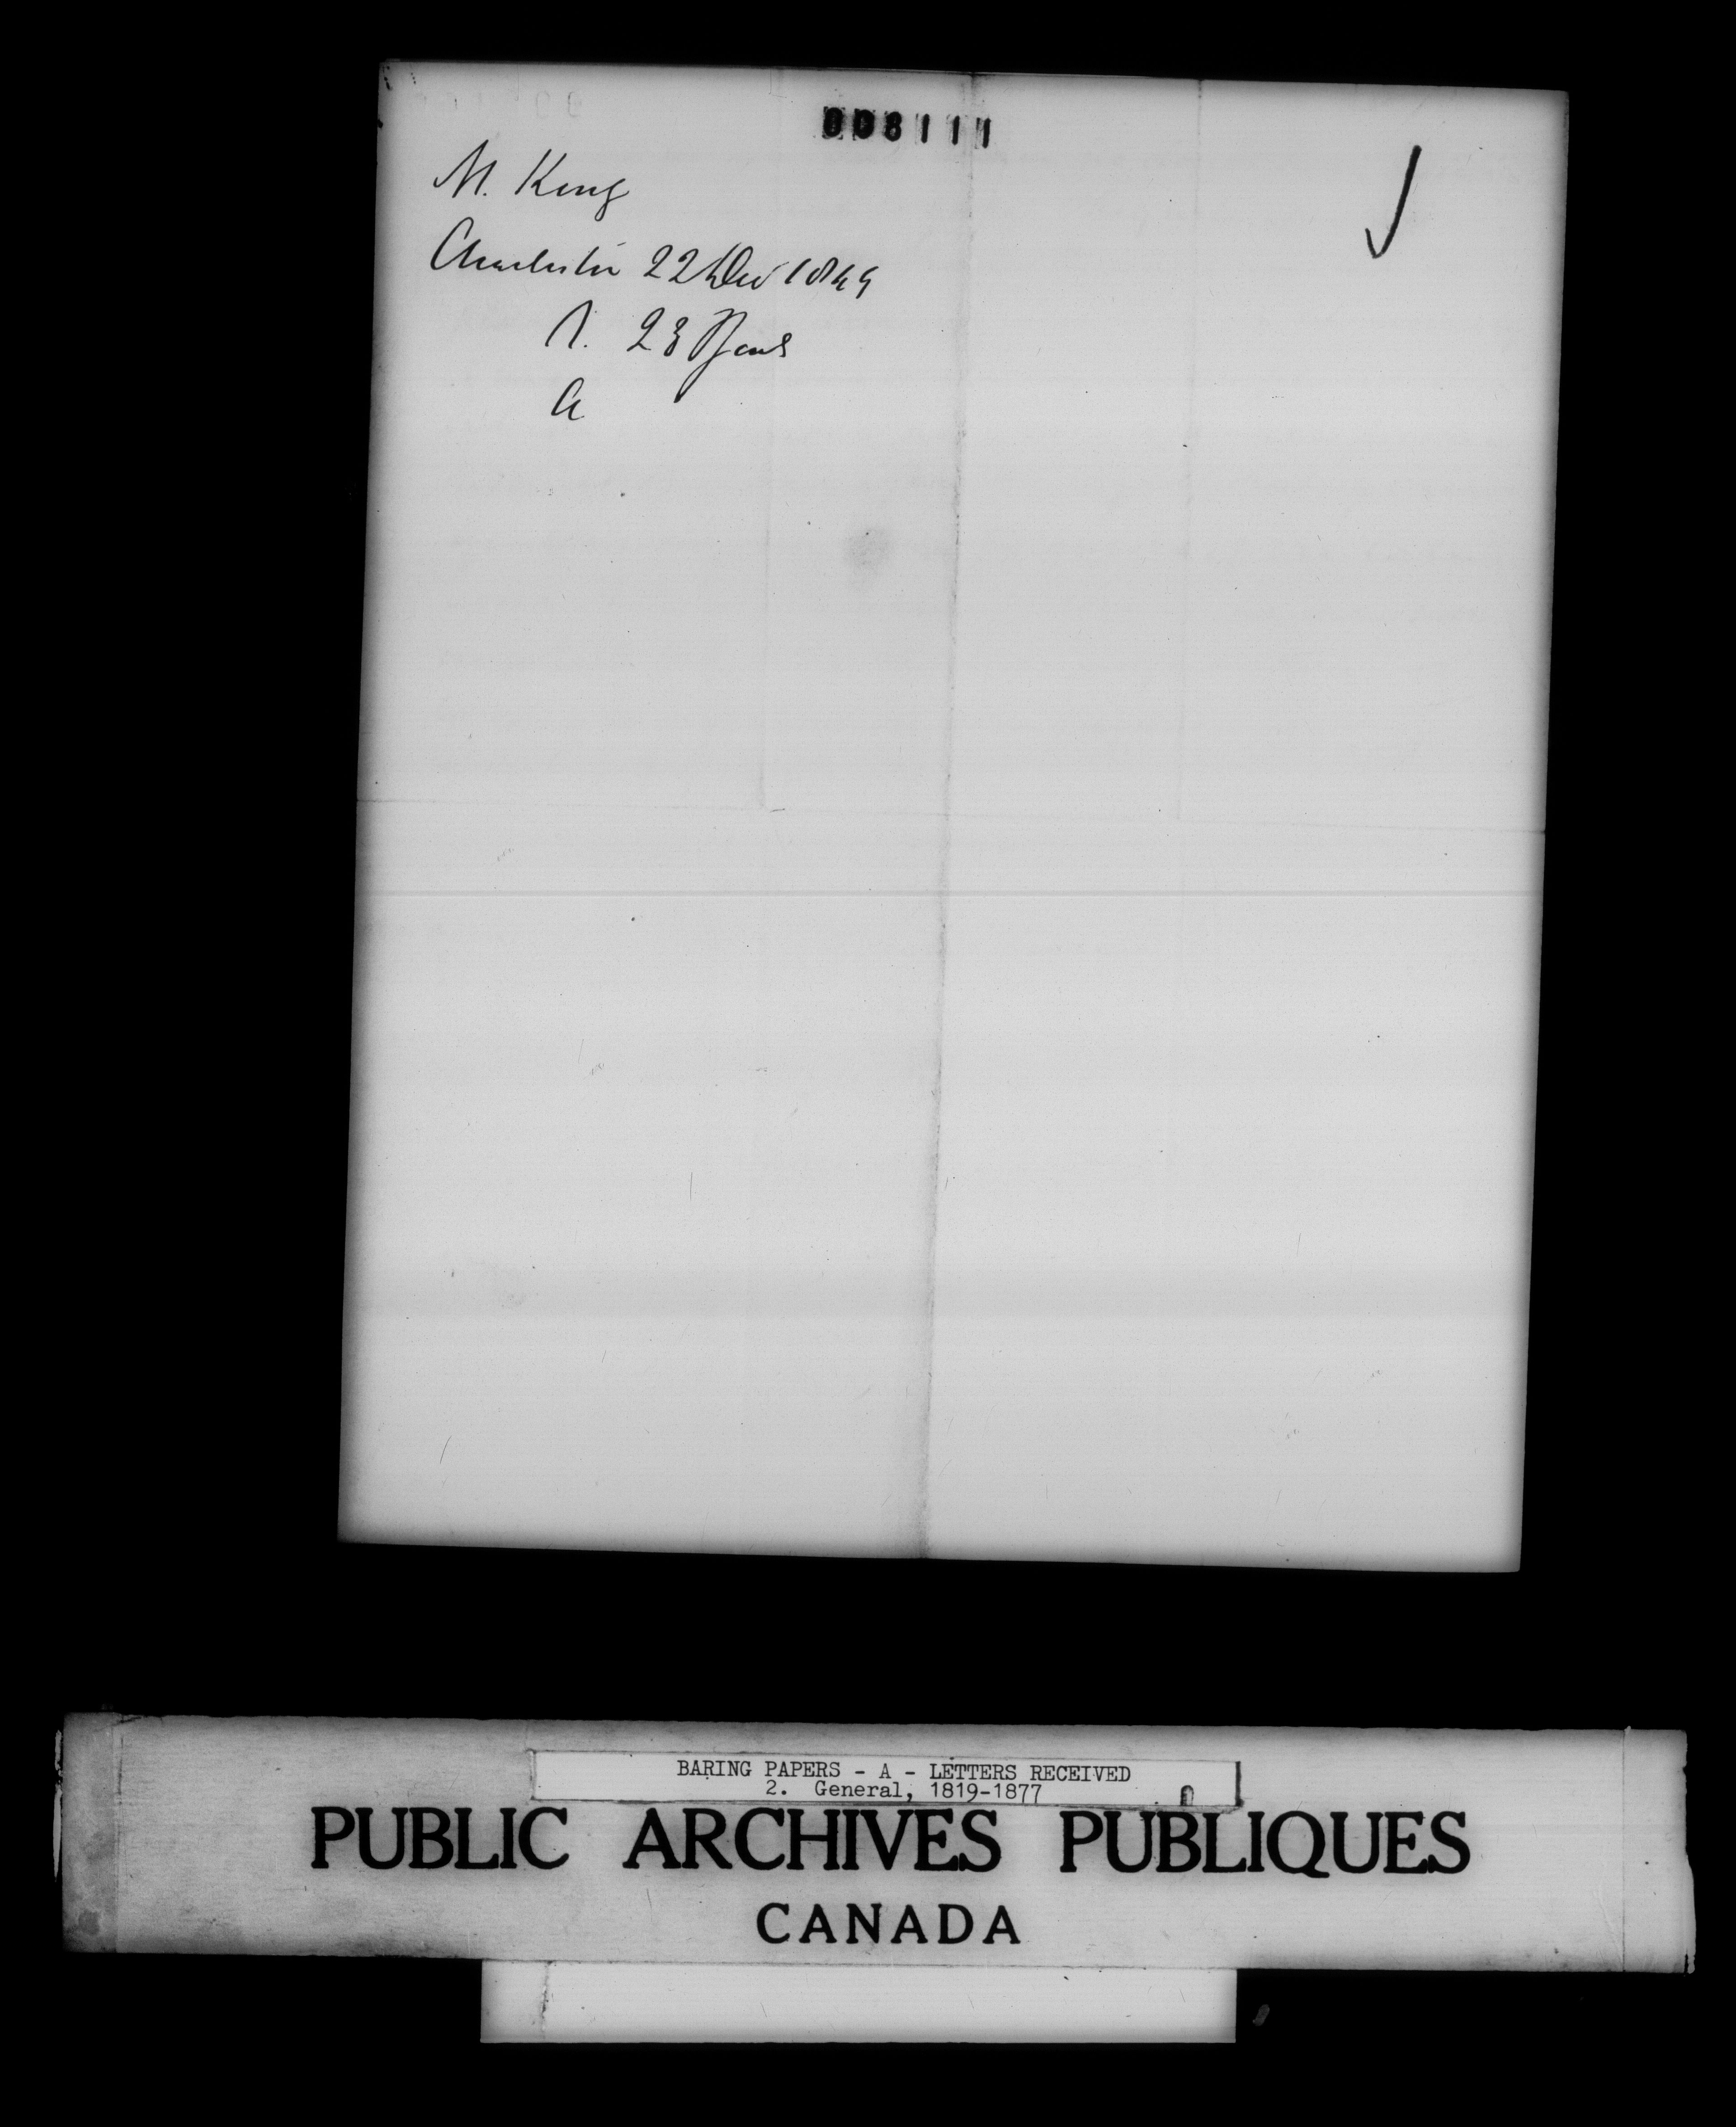 008111
M. King
Charleston 22 Dec 1849
A
BARING PAPERS - A - LETTERS RECEIVED
2. General, 1819-1877
PUBLIC ARCHIVES PUBLIQUES
CANADA